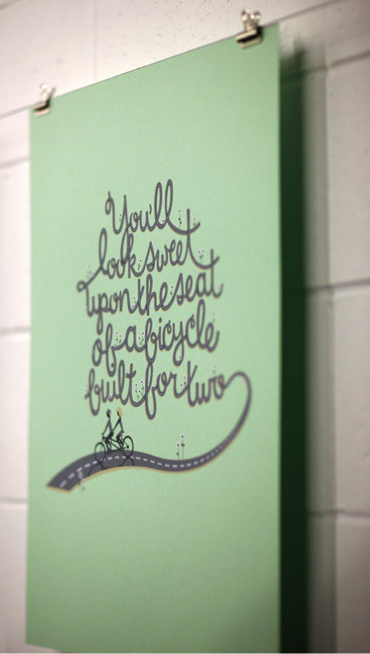 You'll
look sweet
upon the seat
of a bicycle
built for two